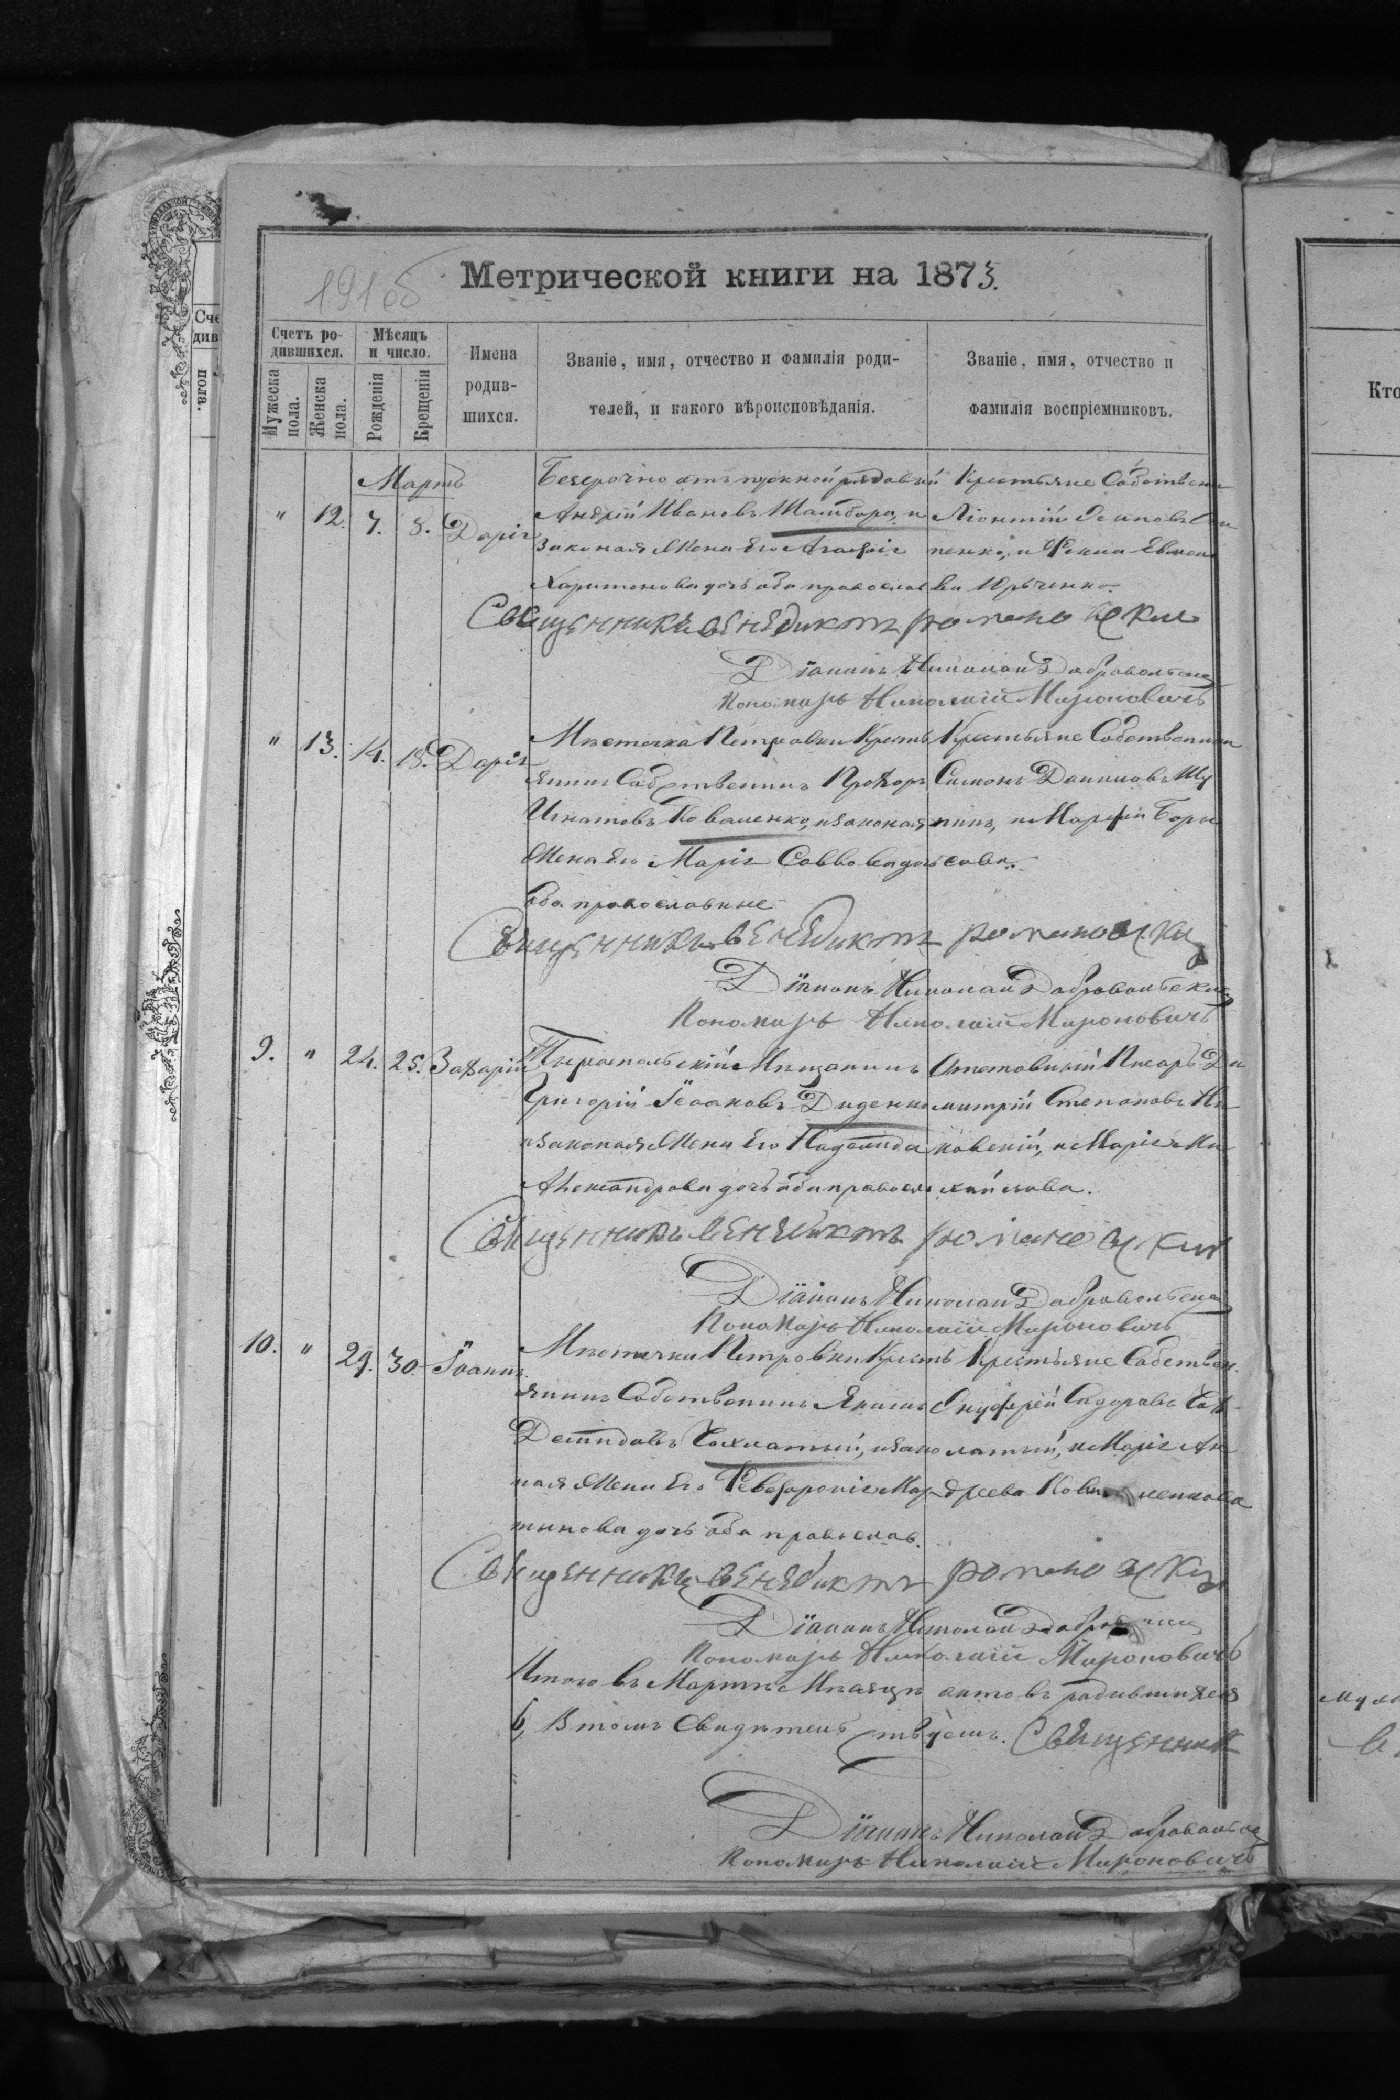 191 об
Метрической книги на 1873.
Счетъ ро-
дившихся.
Мѣсяцъ
и число.
Мужеска
пола.
Женска
пола.
Рожденія
Крещенія
Имена
родив-
шихся.
Званіе, имя, отчество и фамилія роди-
телей, и какого вѣроисповѣданія.
Званіе, имя, отчество и
фамилія воспріемниковъ.
Мартъ
" 12. 7. 8. Дарія
Безсрочно отпускной рядовый
Андрій Ивановъ и
Законая Жена Его
Харитонова дочь оба православ
Крестьяне Собствен
Ліонтій
пенко, и
Юрченко.
Священникъ Венедиктъ Романовскій
Діаконъ Николай Добровольскій
Пономарь Николай Мироновичъ
" 13. 14. 15. Дарія
Мѣстечка Петровки Кресть
янинъ Собственникъ Прохоръ
Игнатовъ Коваленко, и законая
Жена Его Марія Саввова дочь
оба православные
Крестьяне Собственники
Симонъ Даниловъ
и Марфа Бори
сова.
Священникъ Венедиктъ Романовскій
Діаконъ Николай Добровольскій
Пономарь Николай Мироновичъ
9. " 24. 25. Захарій
Тираспольскій Мещанинъ
Григорій Исааковъ Диденко
и законая Жена Его
Александрова дочь оба правосл
Писарь Ди
митрій Степановъ
ковскій, и Марія Ми
хайлова.
Священникъ Венедиктъ Романовскій
Діаконъ Николай Добровольскій
Пономарь Николай Мироновичъ
10. " 29. 30. Іоаннъ
Мѣстечка Петровки Кресть
янинъ Собственникъ Якимъ
Демидовъ Сахматый, и зако
ная Жена Его Февронія Мар
тинова дочь оба православ.
Крестьяне Собствен.
Онуфрій Сидоровъ Сах
матый, и Марія Ан
дреева Коваленкова
Священникъ Венедиктъ Романовскій
Діаконъ Николай
Пономарь Николай Мироновичъ
Итого въ Мартѣ Мѣсяцѣ актовъ родившихся
6, Въ томъ свидѣтельствуемъ. Священник
Діаконъ Николай Добровольск
Пономарь Николай Мироновичъ
Сче
див
пола.
Кто